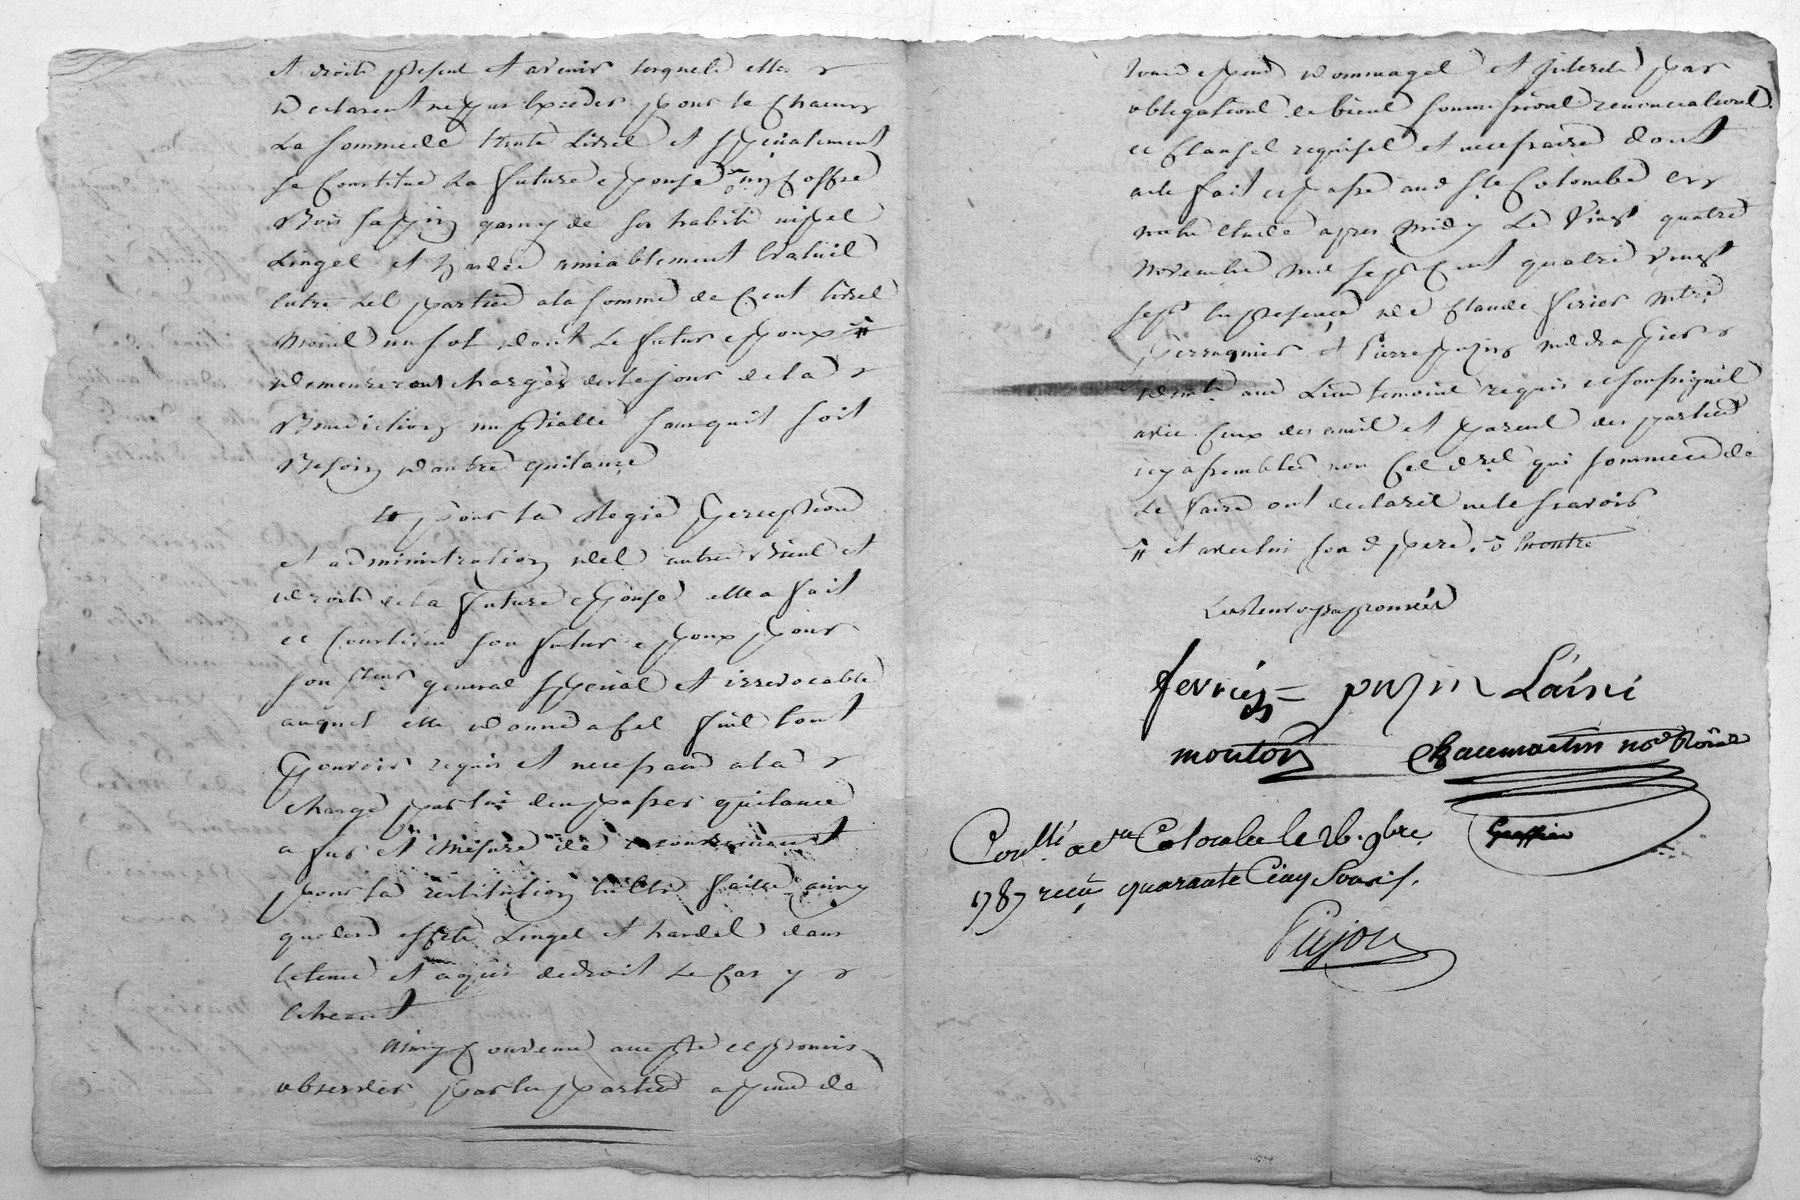 et droits present et avenir lesquels elles
declarent ne pas exceder pour le chacun
la somme de trente livres et specialement
se constitue la future epouse un coffre
Bois sapin garny de ses habits nipes
Linges et hardes amiablement évalués
entre les parties a la somme de cent livres
moins un sol dont le futur epoux #
demeureront chargés des le jour de la
Benediction nuptialle sans quil soit
Besoin dautre quitance
Et pour la Regie perception
et administration des autres Biens et
droits de la future epouse elle a fait
et constitue son futur epoux pour
son general special et irrevocable
auquel elle donne a ses fins tout
pouvoir requis et necessaire a la
charge par lui den passer quitance
a fur et mesure de recouvrement
pour la restitution en etre faitte ainsy
que des effets Linges et hardes dans
le tems et aquis de droit le cas y
echeant
Ainsy convenu accepté et promis
observer par les parties a peine de
tous depens dommages et interets par
obligations de biens soumissions renonciations
et clauses requises et necessaires dont
acte fait et passé aud ste Colombe en
notre etude apres midy le vingt quatre
novembre mil sept cent quatre vingt
sept en presence de Claude ferier mtre
perruquier et Pierre puzin md drapier
aud Lieu temoins requis et soussignés
avec ceux des amis et parens des parties
icy assemblés non celles qui sommées de
le faire ont declarées ne le scavoir
# et avec lui son d pere.
fevrier puzin Lainé
mouton Chaumartin no.re Roïal
Coll.é a ste Colombe le 26 9bre
1787 reçu quarante Cinq Sous 6.
Pujon